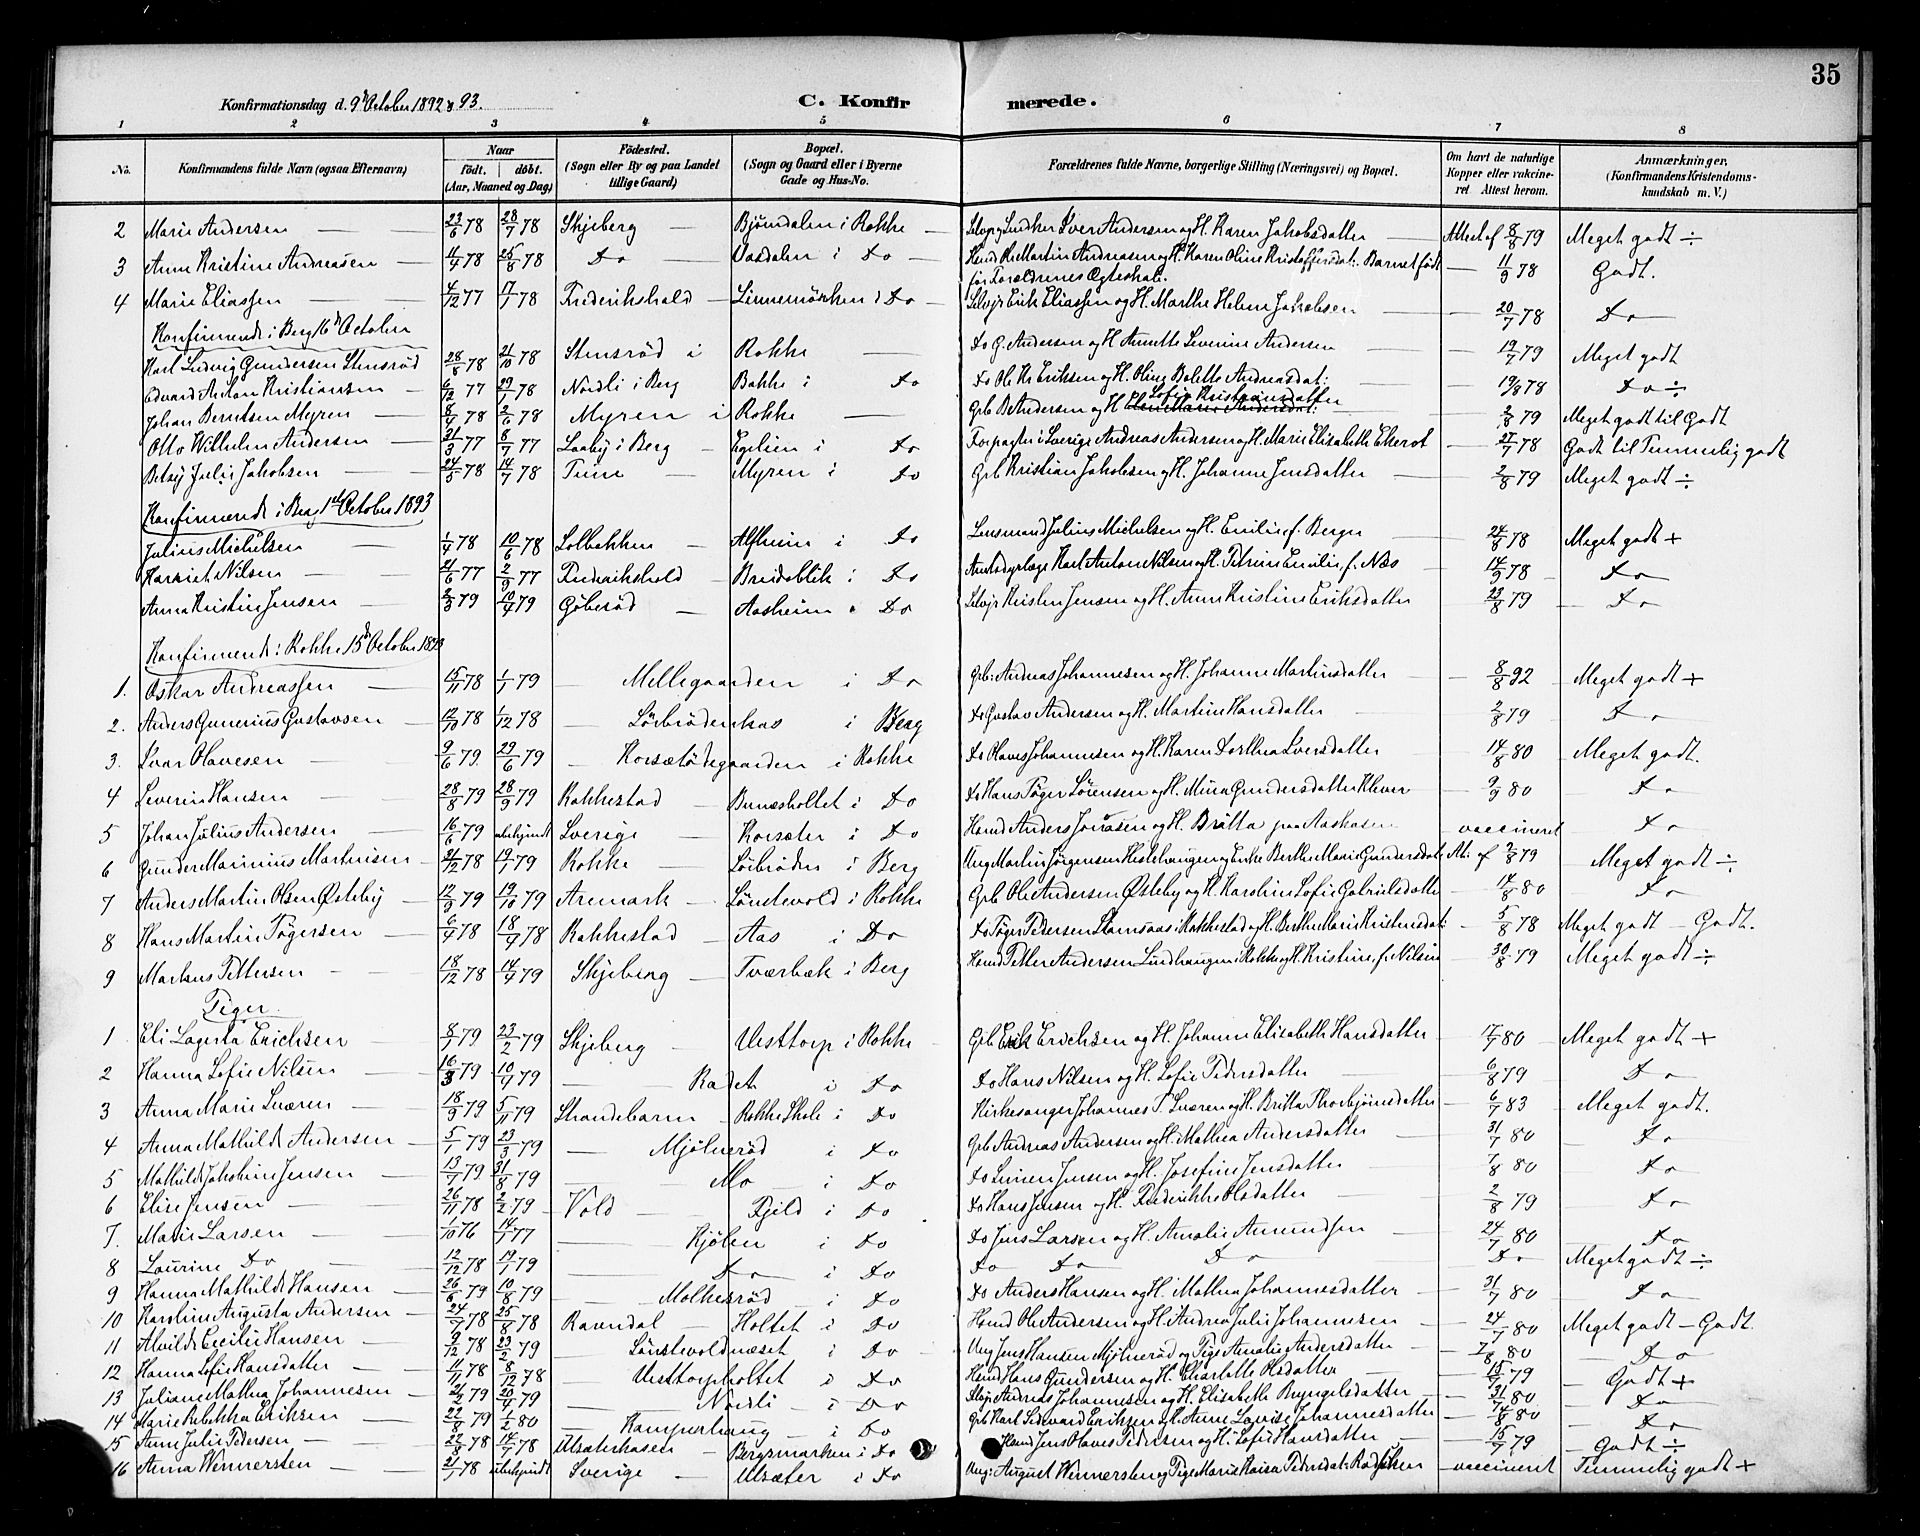 35
Konfirmationsdag d. 9d October 1892 & 93. C. Konfirmerede.
1 2 3 4 5 6 7 8
No. Konfirmandens fulde Navn (ogsaa Efternavn) Naar födt. döbt. (Aar, Maaned og Dag) Födested. (Sogn eller By og paa Landet tillige Gaard) Bopæl. (Sogn og Gaard eller i Byerne Gade og Hus-No. Forældrenes fulde Navne, borgerlige Stilling (Næringsvei) og Bopæl. Om havt de naturlige Kopper eller vakcineret Attest herom. Anmærkninger, (Konfirmandens Kristendomskundskab m. V.)
2 Marie Andersen — 23/6 78 28/7 78 Skjeberg — Bjørndalen i Rokke — Iver Andersen og H. Karen Jakobsdatter — Attest af 8/8 79 Meget godt ÷
3 Anne Kristine Andreasen — 11/4 78 25/8 78 Do — Vasdalen i Do — Martin Andreasen og H. Karen Oline Kristoffersdat: Barnet født før Forældrenes Ægteskab. — 11/9 78 Godt.
4 Marie Eliassen — 4/12 77 17/1 78 Frederikshald — Linnemörken i Do — Selvejr Erik Eliassen og H. Marthe Helene Jakobsen — 20/7 78 Do
Konfirmerede i Berg 16d October
Karl Ludvig Gundersen Stensröd 28/8 78 21/10 78 Stensröd i Rokke — Do G. Andersen og H Annette Severine Andersen — 19/7 79 Meget godt
Edvard Anton Kristiansen — 6/12 77 29/1 78 Nordli i Berg Bakke i Do Do Ole Kr Eriksen og H. Oline Bolette Andreasdat: — 19/8 78 Do ÷
Johan Berntsen Myren — 8/4 78 2/6 78 Myren i Rokke — Grb B Andersen og H Sofie Kristiansdatter — 2/8 79 Meget godt til Godt
Otto Wilhelm Andersen — 31/3 77 8/7 77 Laaby i Berg Egelien i Do Forpagter i Sverige Andreas Andersen og H. Marie Elisabeth Ekerot — 27/7 78 Godt til Temmelig godt
Betsy Julie Jakobsen — 24/5 78 14/7 78 Tune — Myren i Do Grb Kristian Jakobsen og H. Johanne Jensdatter — 2/8 79 Meget godt ÷
Konfirmerede i Berg 1d October 1893
Julius Michelsen — 1/4 78 10/6 78 Solbakken — Alfheim i Do Lensmand Julius Michelsen og H. Emilie f. Berger — 24/8 78 Meget godt +
Harriet Nilsen — 21/6 77 2/9 77 Frederikshald — Breidablik i Do Amtsdyrlæge Karl Anton Nilsen og H. Petrine Emilie f. Næs — 14/9 78 — Do —
Anna Kristine Jensen — 2/3 79 10/4 79 Göberöd — Aasheim i Do Selvejr Kristen Jensen og H. Anne Kristine Eriksdatter — 23/8 79 — Do —
Konfirmerede i Rokke 15d October 1893
1. Oskar Andreassen — 15/11 78 1/1 79 — Mellegaarden i Do Grb: Andreas Johannesen og H. Johanne Martinsdatter — 8/8 92 — Meget godt +
2. Anders Gunerius Gustavsen — 12/10 78 1/12 78 — i Berg Do Gustav Andersen og H. Martine Hansdatter — 2/8 79 — Do
3. Ivar Olavesen — 9/6 79 29/6 79 — i Rokke Do Olaves Johannesen og H. Karen Dorthea Iversdatter — 14/8 80 Meget godt.
4 Severin Hansen — 28/8 79 28/9 79 Rakkestad — Bunesholtet i Do Do Hans Töger Sörensen og H. Mina Gundersdatter Klever — 9/9 80 — Do
5 Johan Julius Andersen — 16/6 79 ubekjendt Sverige — Korsæter i Do Hmd Anders Jonasen og H. Britta paa Aaskasen — vaccineret — Do
6 Gunder Marinius Martinsen — 21/12 78 19/1 79 Rokke — Lörbröden i Berg Ung Martin Jörgensen Hestehaugen og Enke Berthe Marie Gundersdatr At. af 2/8 79 Meget godt ÷
7 Anders Martin Olsen Østeby — 12/9 79 19/10 79 Aremark — Löntevold i Rokke Grb Ole Andersen Østeby og H. Karoline Sofie Gabrielsdatter — 14/8 80 — Do
8 Hans Martin Tögersen — 6/4 78 18/4 78 Rakkestad — Aas i Do Do Töger Pedersen i Rakkestad og H. Berthe Marie Kristensdat: — 5/8 78 Meget godt — Godt.
9 Markus Pettersen — 18/12 78 14/4 79 Skjeberg — Tværbæk i Berg Hmd Petter Andersen Lindhaugen i Rokke og H. Kristine, f. Nilsen — 30/8 79 Meget godt ÷
Piger.
1 Eli Lagerta Erichsen — 8/1 79 23/2 79 Skjeberg — Vesttorp i Rokke Grb Erik Erichsen og H. Johanne Elisabeth Hansdatter — 17/7 80 Meget godt +
2 Hanna Sofie Nilsen — 16/3 79 10/4 79 — Radet i Do Do Hans Nilsen og H. Sofie Pedersdatter — 6/8 79 — Do
3 Anna Marie Sværen — 18/9 79 5/11 79 Strandebarm — Rokke Skole i Do Kirkesanger Johannes T. Sværen og H. Britta Thorbjörnsdatter — 6/7 83 — Meget godt.
4 Anna Mathilde Andersen — 5/1 79 23/3 79 — Mjølneröd i Do Grb Andreas Andersen og H. Mathea Andersdatter — 31/7 80 — Do
5 Mathilde Jakobine Jensen — 13/7 79 31/8 79 — Mo — i Do Do Simen Jensen og H. Josefine Jensdatter — 7/8 80 — Do
6 Elise Jensen — 26/11 78 2/2 79 Vold — Fjeld i Do Do Hans Jensen og H. Frederikke Olsdatter — 2/8 79 — Do
7. Marie Larsen — 1/10 76 14/1 77 — Kjölen i Do Do Jens Larsen og H. Amalie Amundsen — 24/7 80 — Do
8 Laurine Do — 12/12 78 19/1 79 — Do — i Do Do Do Do — Do Meget godt ÷
9 Hanna Mathilde Hansen — 26/6 79 10/8 79 — Molkeröd — i Do Do Anders Hansen og H. Mathea Johannesdatter — 31/7 80 — Do
10 Karoline Augusta Andersen — 24/7 78 25/8 78 Ravndal — Holtet i Do Hmd Ole Andersen og H. Andrea Julie Johannesen — 24/7 80 Meget godt — Godt.
11 Alvilde Cecilie Hansen — 9/12 78 23/2 79 — Löntevoldnæset i Do Ung Jens Hansen Mjølneröd og Pige Amalie Andersdatter — 7/8 80 — Do
12 Hanna Sofie Hansdatter — 11/11 78 8/12 78 — Vesttorpholtet i Do Hmd Hans Gundersen og H. Charlotte Olsdatter — 15/7 79 — Godt +
13 Juliane Mathea Johannesen — 21/2 79 20/4 79 — Nordli — i Do Andreas Johannesen og H. Elisabeth Bryngelsdatter — 31/7 80 — Do
14 Marie Rebekka Eriksen — 22/8 79 1/2 80 — i Do Grb Karl Edevard Eriksen og H. Anne Lovise Johannesdatter — 14/8 80 — Do
15 Anne Julie Pedersen — 22/8 78 14/7 78 Ulsæterhasen — Bergsmarken i Do Hmd Jens Olaves Pedersen og H. Sofie Hansdatter — 15/7 79 — Godt ÷
16 Anna Wennersten — 21/1 78 ubekjendt Sverige — Ulsæter i Do Ung: August Wennersten og Pige Marie Kaisa Pedersdat: — vaccineret — Temmelig godt +